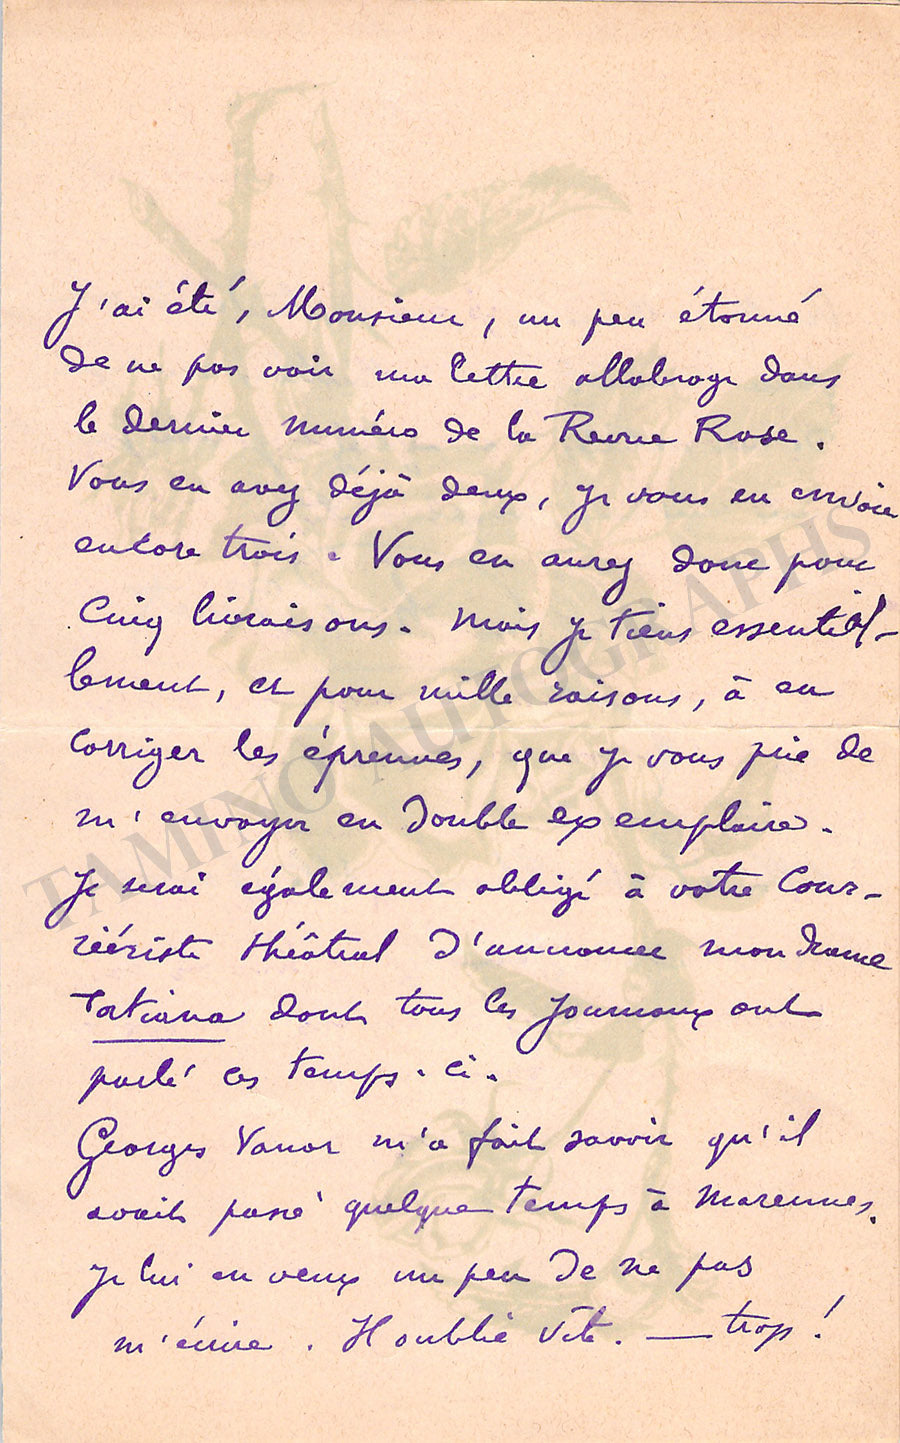 J'ai été, Monsieur, un peu étonné
de ne pas voir ma lettre allobroge dans
le dernier numéro de la Revue Rose.
Vous en avez déjà deux, je vous en envoie
encore trois. Vous en aurez donc pour
cinq livraisons. Mais je tiens essentiel-
lement, et pour mille raisons, à en
corriger les épreuves, que je vous prie de
m'envoyer en double exemplaire.
Je serai également obligé à votre Cour-
riériste théâtral d'annoncer mon drame
Tatiana dont tous les journaux ont
parlé ces temps-ci.
Georges Vanor m'a fait savoir qu'il
avait passé quelque temps à Marennes.
Je lui en veux un peu de ne pas
m'écrire. Il oublie vite. — trop!
TAMINO AUTOGRAPHS